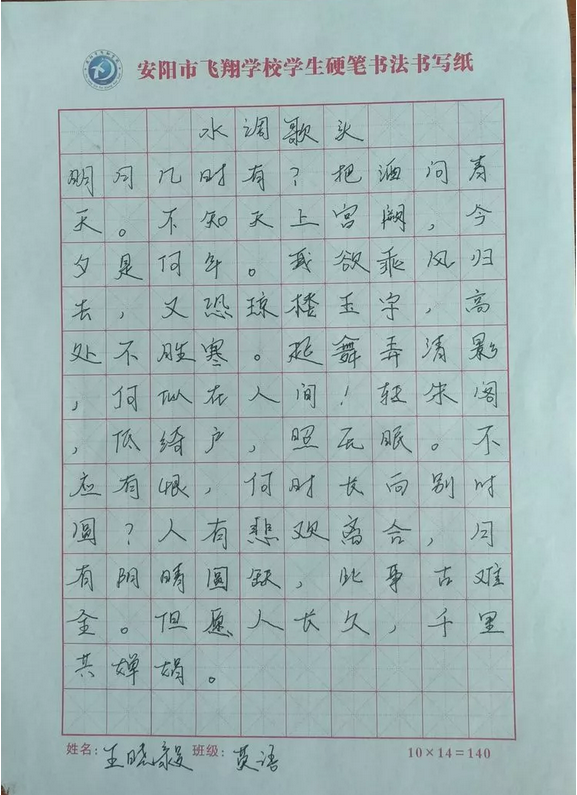 安阳市飞翔学校学生硬笔书法书写纸
水调歌头
明月几时有？把酒问青
天。不知天上宫阙，今
夕是何年。我欲乘风归
去，又恐琼楼玉宇，高
处不胜寒。起舞弄清影
，何似在人间！转朱阁
，低绮户，照无眠。不
应有恨，何时长向别时
圆？人有悲欢离合，月
有阴晴圆缺，此事古难
全。但愿人长久，千里
共婵娟。
姓名：王晓毅 班级：英语 10×14=140